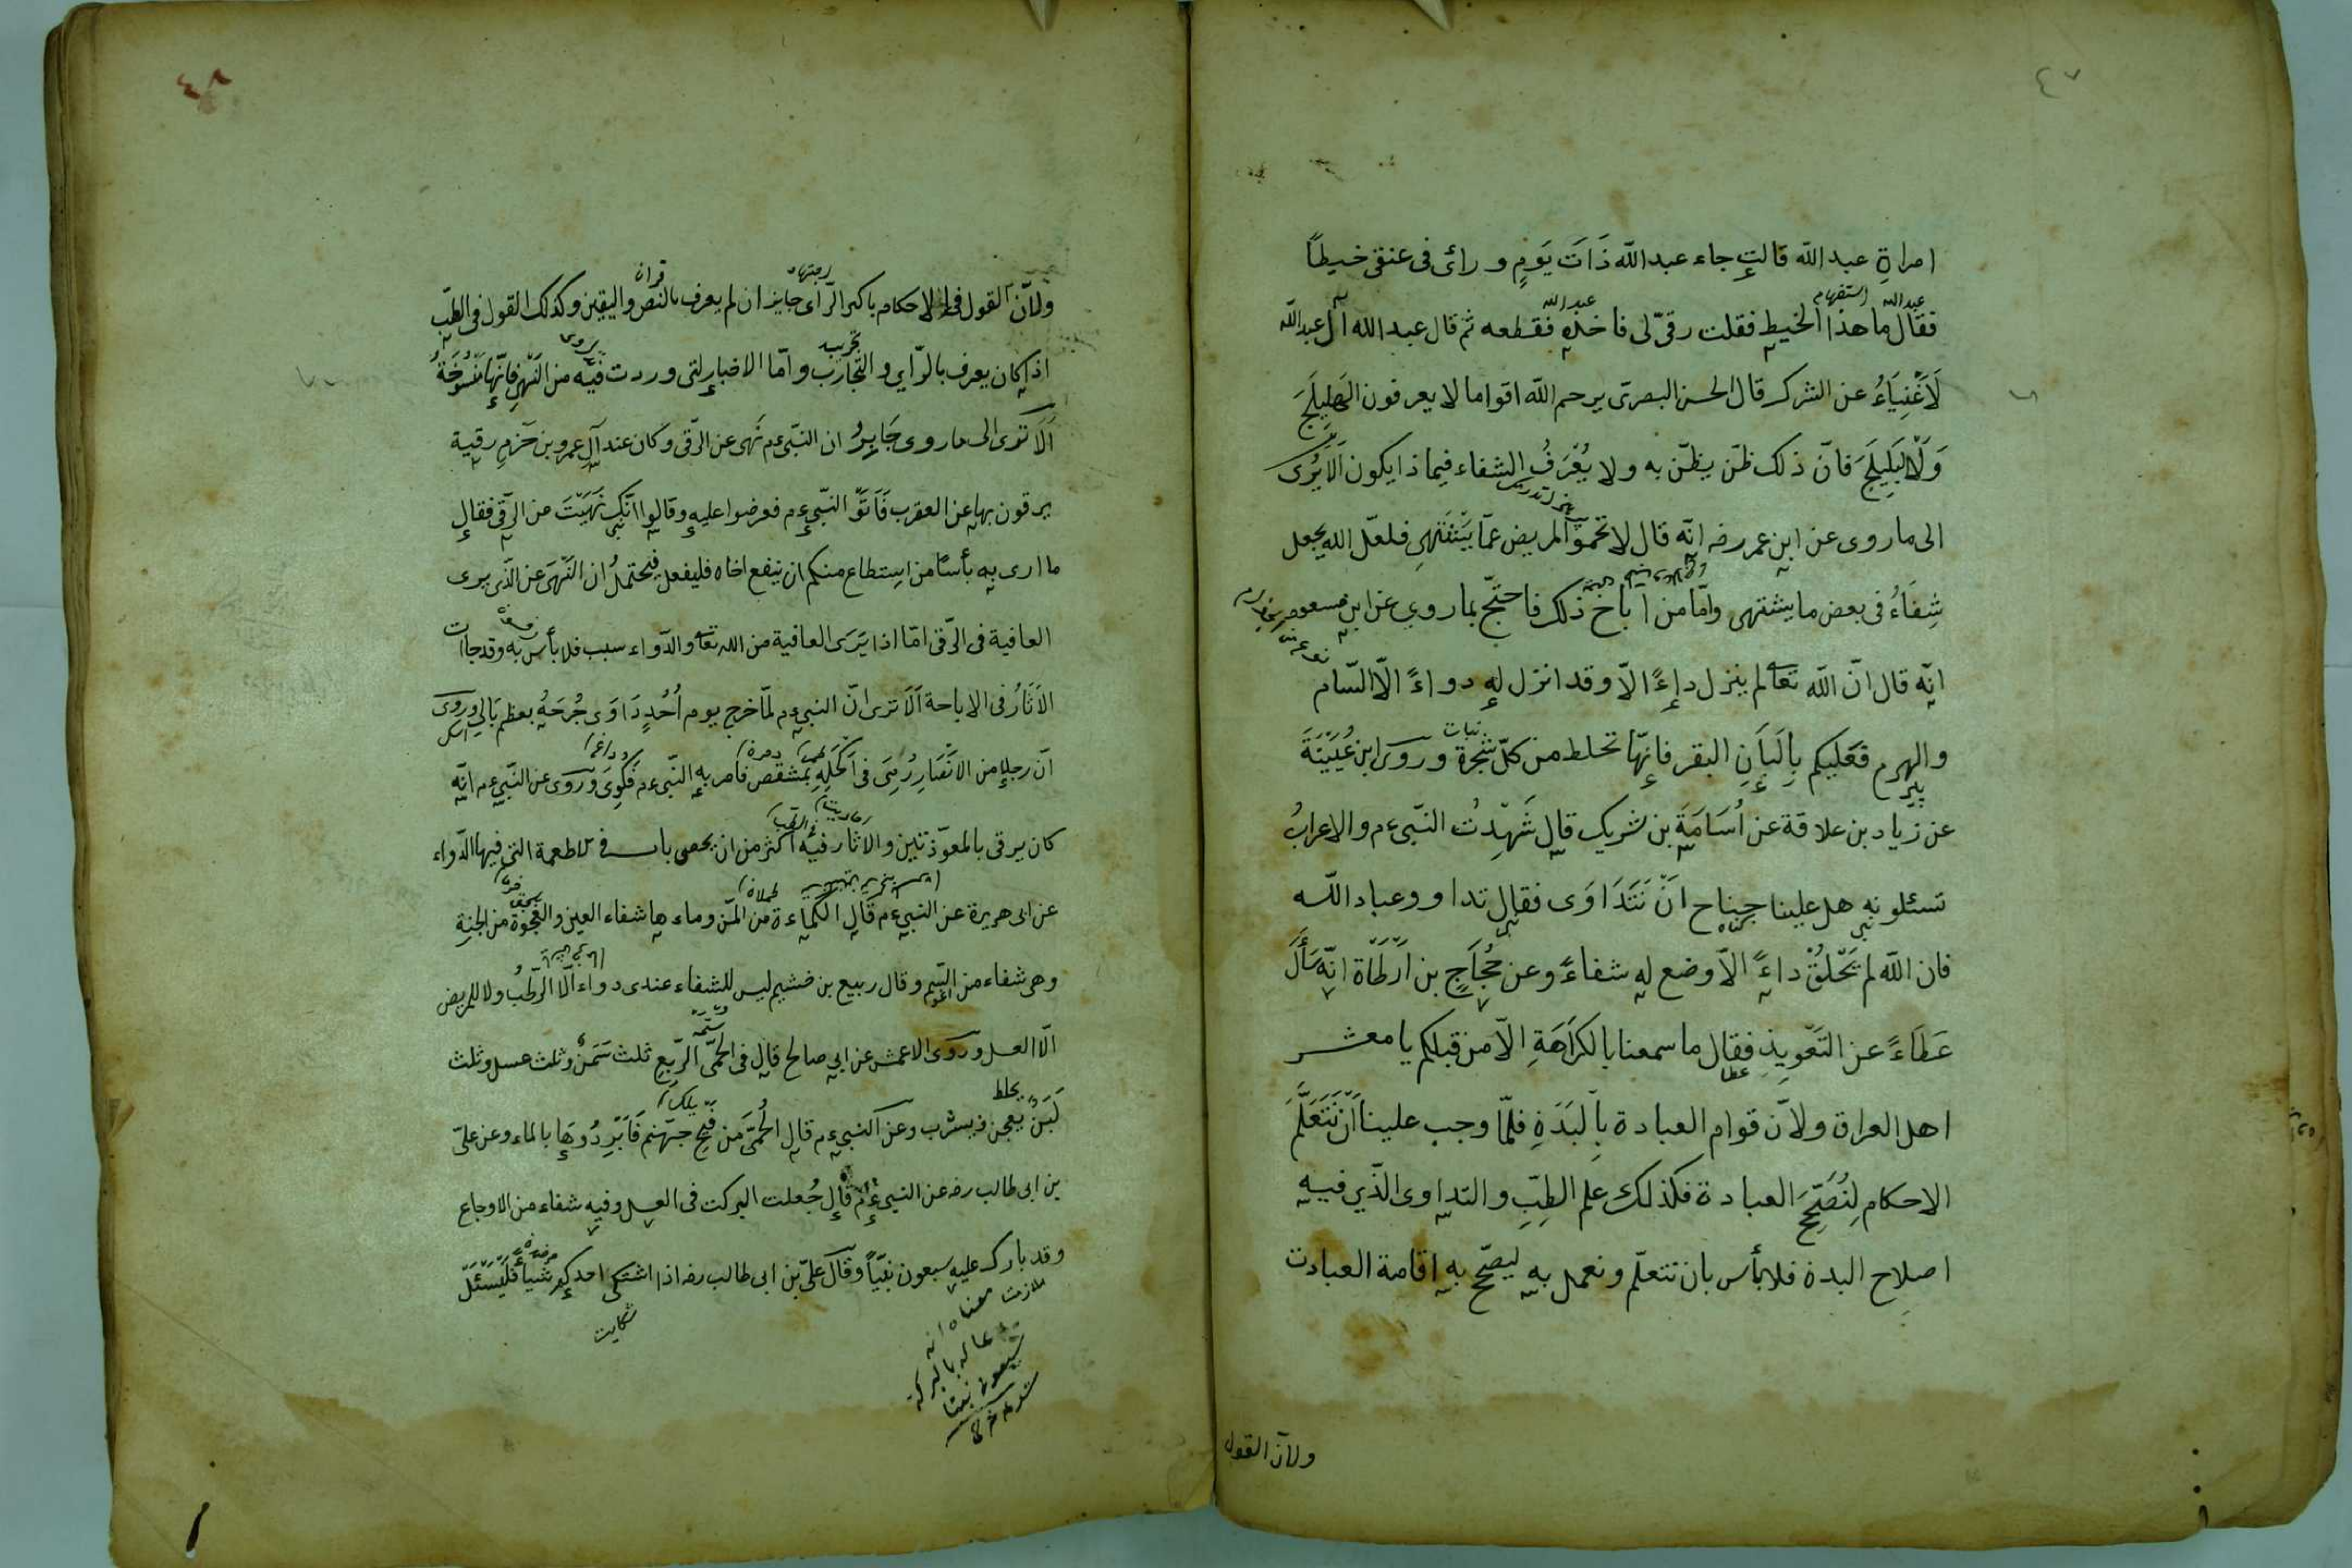 ٤٧
امراةِ عبد الله قالت جاء عبد الله ذَاتَ يَومٍ و رائ فى عنقى خيطًا
عبد الله استفهام عبد الله
فقال ما هذا الخيط فقلت رقىّ لى فاخذه فقطعه ثم قال عبد الله آل عبد الله
لَاَغْنِيَاءُ عن الشرك قال الحسن البصرى يرحم الله اقواما لا يعرفون الهَلِيلَجَ
وَلَا البَلِيلَجَ فانّ ذلك ظنّ يظنّ به ولا يُعْرَفُ الشفاء فيماذا يكون اَلَا يُرى
الى ما روى عن ابن عمر رضه انّه قال لا تحموا المريض عمّا يَشْتَهِى فلعلّ الله يجعل
شِفَاءُ فى بعض ما يشتهى وامّا من اباح ذلك فاحتجّ بما روى عن ابن مسعود
انّه قال انّ الله تعالى لم ينزل داءً الاّ وقد انزل له دواءً الّا السّام
نبات
والهرم فعليكم بِاَلبَانِ البقر فانّها تخلط من كلّ شجرة وروى ابن عُيَيْنَةَ
عن زياد بن علاقة عن اُسَامَةَ بن شريك قال شَهِدْتُ النّبىءم والاعرابُ
تسئلونه هل علينا جناح انْ نَتَدَاوَى فقال تداووعباد اللّه
فان اللّه لم يَخْلُقْ داءً الاّ وضع له شفاءً وعن حُجَاجٍ بن اَرْطَاة انّه سَأَلَ
عَطَاءً عن التَعْوِيذِ فقال ما سمعنا بالكَرَاهَةِ الاّ من قبلكم يا معشر
عطا
اهل العراق ولانّ قوام العبادة بِالبَدَنِ فلمّا وجب علينا اَنْ نَتَعَلَّمَ
الاحكام لِنُصَحِّحَ العبادة فكذلك علم الطِبِّ والتداوى الّذى فيه
اصلاح البدن فلا بأس بان نتعلّم ونعمل به ليصحّ به اقامة العبادت
ولانّ القول
٤٨
اجتهاد قران
ولانّ القول فى الاحكام باكبر الرّاى جايز ان لم يعرف بالنص واليقين وكذلك القول فى الطبّ
تجربه
اذ كان يعرف بالرّاى والتجارب وامّا الاخبار لتى وردت فيه من النَهْىِ فانّها مَنْسُوخَةُ
اَلَا ترى الى ما روى جَابِرُ ان النبّىءم نَهى عن الرّقى وكان عند آلِ عمرو بن حَزمٍ رقية
يرقون بها عن العقرب فَاَتَوْ النبّىءم فعرضوا عليه وقالوا انّك نَهَيْتَ من الرّقى فقال
ما ارى به بأسًا من استطاع منكم ان ينفع اخاه فليفعل فيحتملُ ان النَهْىَ عن الّذى يرى
العافية فى الرّقى امّا اذا يَرَى العافية من الله تعالى والدّواء سبب فلا بأس به وقد جاات
الاَثَارُ فى الاباحة اَلَا ترى انّ النبىءم لمّا خرج يوم اُحُدٍ دَاوَى جُرحَهُ بعظم بَالِى وروى
انّ رجلا من الاَنْصَارِ رُمِىَ فى اَكْحَلِهِ بمِشْقَص فامر به النّبىءم فَكُوِىَ وروى عن النّبىءم انّه
كان يرقى بالمعوّذتين والاثار فيه اكثر من ان يحصى باب فى الاطعمة التى فيها الدّواء
عن ابى هريرة عن النبىءم قال الكَماءة من المنّ وماءها شفاء العين والعَجْوَة من الجنة
وهى شفاء من السّم وقال ربيع بن خشيم ليس للشفاء عندى دواء الّا الرّطَبُ ولا للمريض
الّا العسل وروى الاعمش عن ابى صالح قال فى الحمّى الرّبع ثلث سَمنْ وثلث عسل وثلث
يخلط
لَبَنْ يعجن ويشرب وعن النبىءم قال الحُمَّى من فَيْحِ جهنم فَاَبْرِدُوهَا بالماء وعن علىّ
بن ابى طالب رضه عن النبىءم قال جُعلت البركت فى العسل وفيه شفاء من الاوجاع
وقد بارك عليه سبعون نبيّاً وقال علىّ بن ابى طالب رضه اذا اشتكى احدكم شيأ فَليَسْئَلْ
شكايت
معناه انه
دعا له بالبركة
سبعون نبيّا